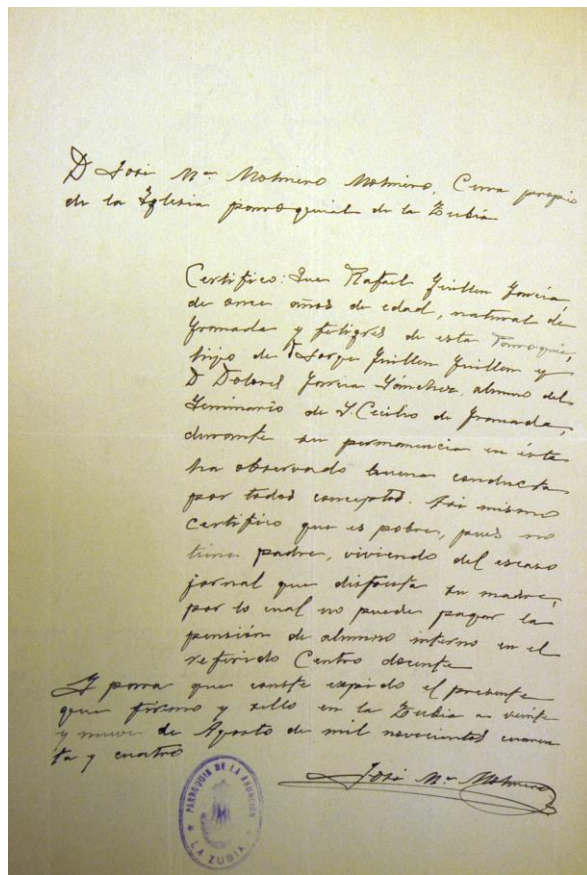 D José Mª Molinero Molinero, Cura propio
de la Iglesia parroquial de la Zubia
Certifico: Que Rafael Guillen Garcia,
de once años de edad, natural de
Granada y feligres de esta Parroquia,
hijo de D Jorge Guillen Guillen y
D Dolores Garcia Gómez, alumno del
Seminario de S. Cecilio de Granada,
durante su permanencia en ésta
ha observado buena conducta
por todos conceptos. Asi mismo
certifico que es pobre, pues no
tiene padre, viviendo del escaso
jornal que disfruta su madre,
por lo cual no puede pagar la
pensión de alumno interno en el
referido Centro docente
Y para que conste expido el presente
que firmo y sello en la Zubia a veinte
y nueve de Agosto de mil novecientos cuaren
ta y cuatro
José Mª Molinero
PARROQUIA DE LA ASUNCIÓN
LA ZUBIA